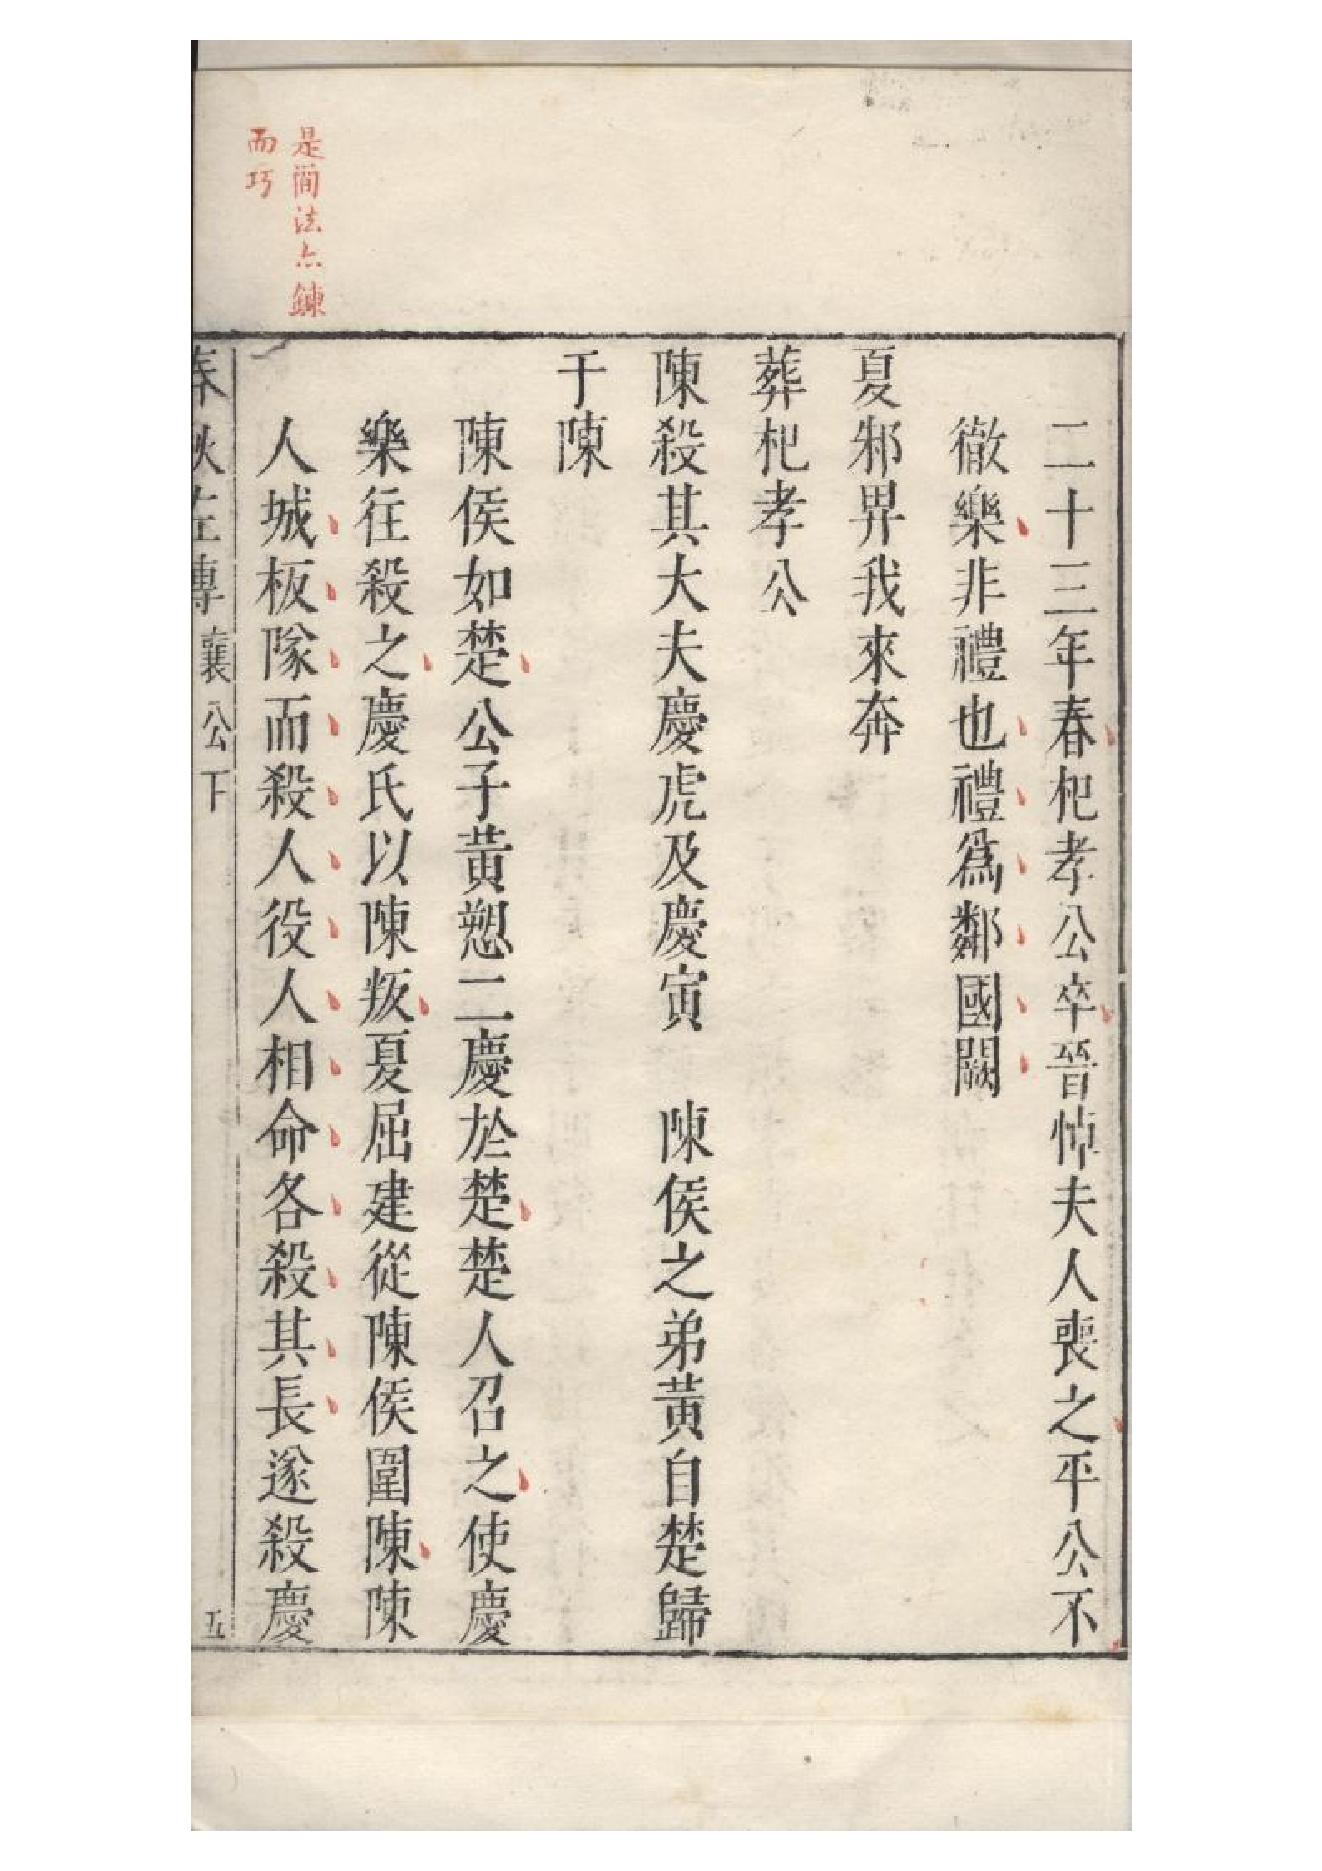 是簡法亦鍊
而巧
二十三年春杞孝公卒晉悼夫人喪之平公不
徹樂非禮也禮爲鄰國闕
夏邾畀我來奔
葬杞孝公
陳殺其大夫慶虎及慶寅　陳侯之弟黃自楚歸
于陳
陳侯如楚公子黃愬二慶於楚楚人召之使慶
樂往殺之慶氏以陳叛夏屈建從陳侯圍陳陳
人城板隊而殺人役人相命各殺其長遂殺慶
春秋左傳 襄公下 五